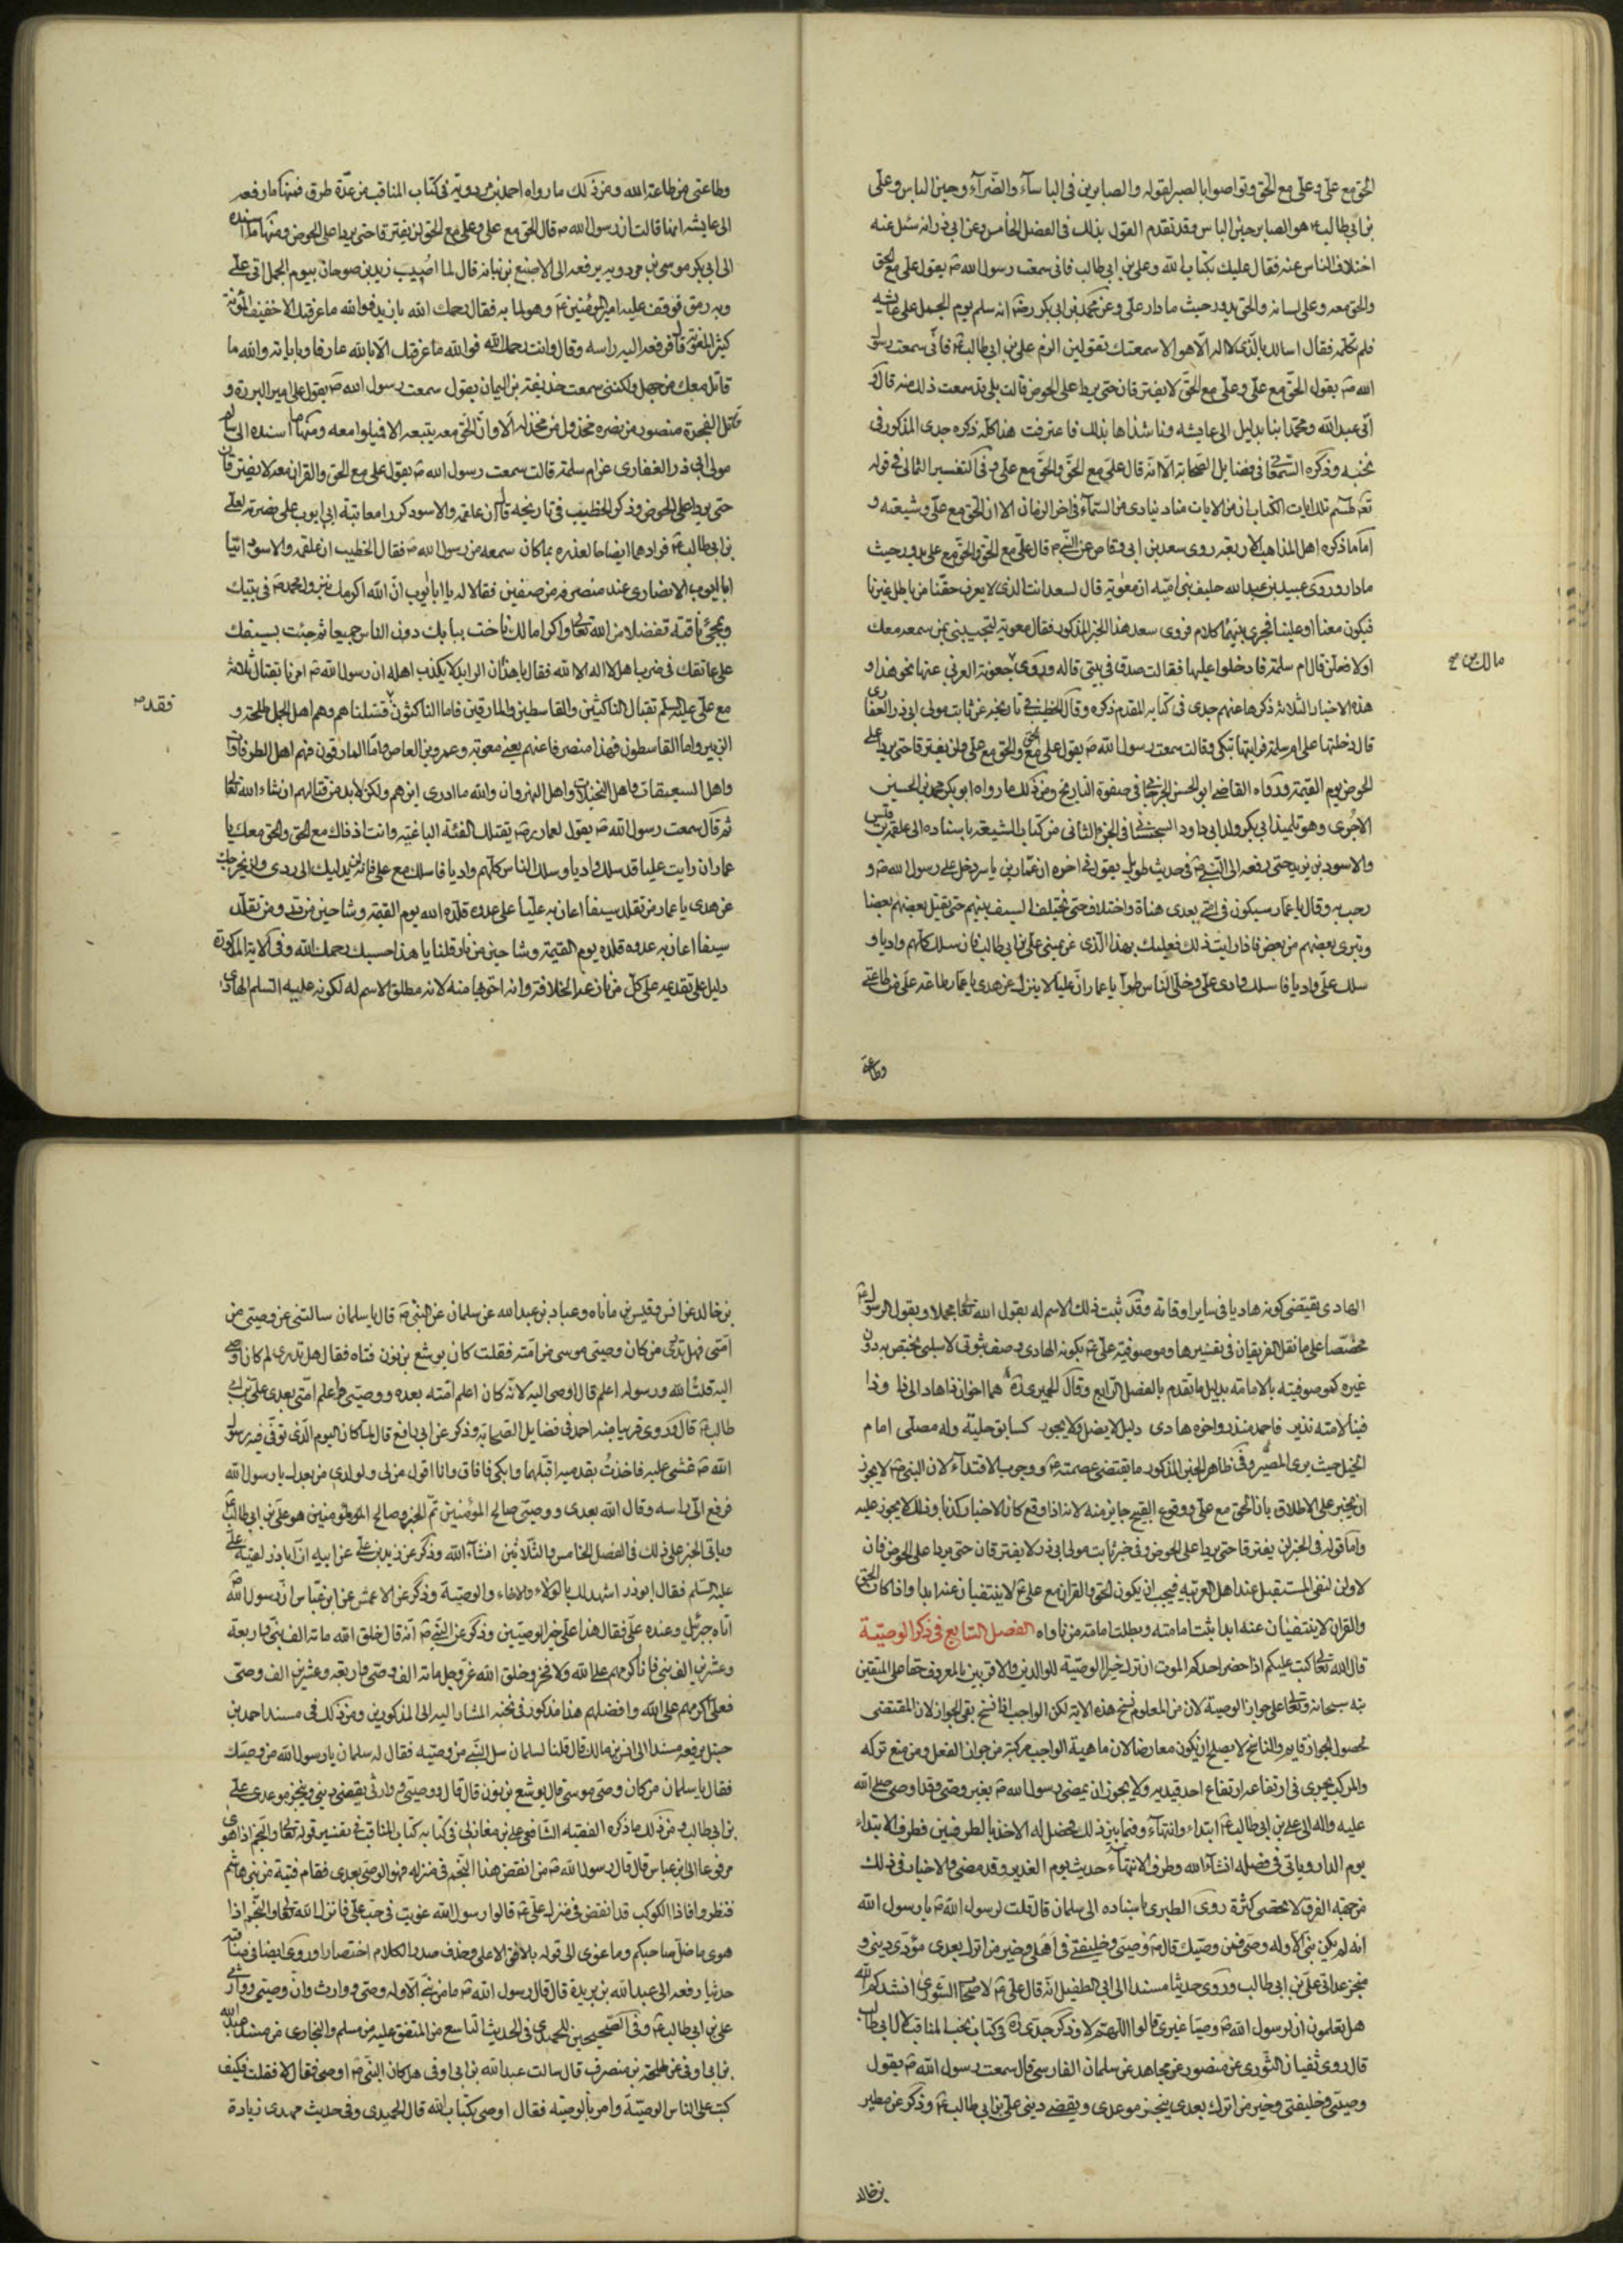 الحق مع علي وعلي مع الحق وتواصوا بالصبر لقوله والصابرين في الباساء والضراء وحين الباس وعلي
بن ابي طالب هو الصابر حين الباس وقد تقدم القول بذلك في الفصل الخامس وعن ابي ذر انه سئل عنه
اختلاف الناس عنه فقال عليك بكتاب الله وعلي بن ابي طالب فاني سمعت رسول الله ص يقول علي مع الحق
والحق معه وعلى لسانه والحق يدور حيث ما دار علي وعن محمد بن ابي بكر رض انه سلم يوم الجمل على عايشه
فلم تكلمه فقال اسالك بالذي لا اله الا هو الا سمعتك تقولين الزم علي بن ابي طالب فاني سمعت رسول
الله ص يقول الحق مع علي وعلي مع الحق لا يفترقان حتى يردا على الحوض قالت بلى قد سمعت ذلك منه قال
اتى عبد الله ومحمد ابنا بديل الى عايشه وناشداها بذلك فاعترفت هذا كله ذكره جدي المذكور في
نخبه وذكره السمعاني في فضايل الصحابة الا انه قال علي مع الحق والحق مع علي وفي التفسير الثمالي في قوله
تعالى طسم تلك ايات الكتاب ان من الايات مناد ينادي من السماء في اخر الزمان الا ان الحق مع علي وشيعته و
اما ما ذكره اهل المذاهب الاربعه روى سعد بن ابي وقاص عن النبي ص قال علي مع الحق والحق مع علي يدور حيث
ما دار وروى عبيد بن عبد الله حليف بني اميه ان معوية قال لسعد انت الذي لا يعرف حقنا من باطل غيرنا
فيكون معنا او علينا فجرى بينهما كلام فروى سعد هذا الخبر المذكور فقال معوية لتجيبني بمن سمعه معك
او لافعلن قال ام سلمة فدخلوا عليها فقالت صدق في بيتي قاله وروى جعونة العرني عنها نحو هذا و
مالك بن
هذه الاخبار الثلاثة ذكرها عنهم جدي في كتابه المقدم ذكره وقال الخطيب في تاريخه عن ثابت مولى ابي ذر الغفاري
قال دخلتها على ام سلمة فرايتها تبكي وقالت سمعت رسول الله ص يقول علي مع الحق والحق مع علي ولن يفترقا حتى يردا علي
الحوض يوم القيمة ورواه القاضي ابو الحسن الجرجاني في صفوة التاريخ ومن ذلك ما رواه ابو بكر محمد بن الحسين
الاجري وهو تلميذ ابي بكر ولد ابي داود السجستاني في الجزء الثاني من كتاب الشيعة باسناده الى علقمة بن قيس
والاسود بن يزيد حتى رفعه الى النبي ص في حديث طويل يقول في اخره ان عمار بن ياسر دخل على رسول الله ص و
رحب به وقال يا عمار سيكون في امتي بعدي هناة واختلاف حتى يختلف السيف بينهم حتى يقتل بعضهم بعضا
ويتبرى بعضهم من بعض فاذا رايت ذلك فعليك بهذا الذي عن يميني علي بن ابي طالب فان سلك الناس كلهم واديا و
سلك علي واديا فاسلك وادي علي وخلي الناس طرا يا عمار ان عليا لا يزلك عن هدى يا عمار طاعة علي من طاعتي
وطاعتي
وطاعتي من طاعة الله ومن ذلك ما رواه احمد بن مردويه في كتاب المناقب من عدة طرق فمنها ما رفعه
الى عايشه انها قالت ان رسول الله ص قال الحق مع علي وعلي مع الحق لن يفترقا حتى يردا علي الحوض ومنها ما اسنده
الى ابي بكر موسى بن مردويه يرفعه الى الاصبغ بن نباته قال لما اصيب زيد بن صوحان يوم الجمل اتى علي
وبه رمق فوقف عليه امير المؤمنين ع وهو لما به فقال رحمك الله يا زيد فوالله ما عرفتك الا خفيف المؤنة
كثير المعونة قال فرفع اليه راسه وقال وانت رحمك الله فوالله ما عرفتك الا بالله عارفا وباياته والله ما
قاتلت معك من جهل ولكنني سمعت حذيفة بن اليمان يقول سمعت رسول الله ص يقول علي امير البررة و
قاتل الفجرة منصور من نصره مخذول من خذله الا وان الحق معه يتبعه الا فميلوا معه ومنها ما اسنده الى سالم
مولى ابي ذر الغفاري عن ام سلمة قالت سمعت رسول الله ص يقول علي مع الحق والقران معه لا يفترقان
حتى يردا علي الحوض وذكر الخطيب في تاريخه قال ان علقمه والاسود كررا معاتبة ابي ايوب على نصرته لعلي
بن ابي طالب فزادهما ايضاحا لعذره بما كان سمعه من رسول الله ص فقال الخطيب ان علقمه والاسود اتيا
ابا ايوب الانصاري عند منصرفه من صفين فقالا له يا ابا ايوب ان الله اكرمك بنزول محمد ص في بيتك
وبمجئ ناقته تفضلا من الله تعالى واكراما لك اناخت ببابك دون الناس جميعا ثم جئت بسيفك
على عاتقك في ضرب اهل لا اله الا الله فقال يا هذان الرايد لا يكذب اهله ان رسول الله ص امرنا بقتال ثلاثة
مع علي عليه السلم بقتال الناكثين والقاسطين والمارقين فاما الناكثون فقتلناهم وهم اهل الجمل طلحة و
فقد ص
الزبير واما القاسطون فهذا منصرفنا عنهم يعني معوية وعمرو بن العاص واما المارقون فهم اهل الطرفاوات
واهل السعيفات واهل النخيلات واهل النهروان والله ما ادري اين هم ولكن لا بد من قتالهم ان شاء الله تعالى
ثم قال سمعت رسول الله ص يقول لعمار تقتلك الفئة الباغيه وانت اذ ذاك مع الحق والحق معك يا
عمار ان رايت عليا قد سلك واديا وسلك الناس كلهم واديا فاسلك مع علي فانه لن يدليك الى ردى ولن يخرجك
عن هدى يا عمار من تقلد سيفا اعان به عليا على عدوه قلده الله يوم القيمة وشاحين من در ومن تقلد
سيفا اعان به عدوه قلده يوم القيمة وشاحين من نار قلنا يا هذا حسبك رحمك الله وفي الاية المذكورة
دليل على تقديمه على كل من ادعى الخلافة وانه احق بها منه لانه مطلق الاسم له لكونه عليه السلم الهادي
الهادي يقتضي كونه هاديا في ساير اوقاته وقد ثبت ذلك الاسم له بقول الله تعالى مجملا وبقول الرسول ص
مخصصا على ما نقل الفريقان في تفسيرها وموصوفية علي ع بكونه الهادي وصف ثبوتي لا سلبي يختص به دون
غيره كموصوفيته بالامامة بدليل ما تقدم بالفصل الرابع وقال الحميري ره هما اخوان ذا هاد الى ذا وذا
فينا لامته نذير فاحمد منذر واخوه هادي دليل لا يضل ولا يجور كسابق حلبة وله مصلي امام
الخيل حيث يرى المصير وفي ظاهر الخبر المذكور ما يقتضي عصمته ع ووجوب الاقتداء لان النبي ص لا يجوز
ان يخبر على الاطلاق بان الحق مع علي ووقوع القبيح جايز منه لانه اذا وقع كان الاخبار كذبا وذلك لا يجوز عليه
واما قوله في الخبر لن يفترقا حتى يردا علي الحوض وفي خبر ثابت مولى ابي ذر لا يفترقان حتى يردا علي الحوض فان
لا ولن لنفي المستقبل عند اهل العربيه فيجب ان يكون الحق والقران مع علي ع لا ينتفيان عنه ابدا واذا كان الحق
والقران لا ينتفيان عنه ابدا ثبت امامته وبطلت امامة من ناواه الفصل السابع في ذكر الوصية
قال الله تعالى كتب عليكم اذا حضر احدكم الموت ان ترك خيرا الوصية للوالدين والاقربين بالمعروف حقا على المتقين
نبه سبحانه وتعالى على جواز الوصية لان من المعلوم نسخ هذه الاية لكن الواجب اذا نسخ بقي الجواز لان المقتضي
لحصول الجواز قايم والناسخ لا يصلح ان يكون معارضا لان ماهية الواجب مركبة من جواز الفعل ومن منع تركه
والمركب يجري في ارتفاعه ارتفاع احد قيديه ولا يجوز ان يمضي رسول الله ص بغير وصي وقد اوصى صلى الله
عليه واله الى علي بن ابي طالب ابتداء وانتهاء وفيما بين ذلك فحصل له الاخذ بالطرفين فطرف الابتداء
يوم الدار وياتي في فصله انشاء الله وطرف الانتهاء حديث يوم الغدير وقد مضى والاخبار في ذلك
من جهة الفرق لا تحصى كثرة روى الطبري باسناده الى سلمان قال قلت لرسول الله ص يا رسول الله
انه لم يكن نبي الا وله وصي فمن وصيك قال ص وصيي وخليفتي في اهلي وخير من اترك بعدي مؤدي ديني و
منجز عداتي علي بن ابي طالب وروى حديثا مسندا الى ابي الطفيل انه قال علي ع لاصحاب الشورى انشدكم الله
هل تعلمون ان لرسول الله ص وصيا غيري قالوا اللهم لا وذكر جدي ره في كتاب نخب المناقب لال ابي طالب
قال روى سفيان الثوري عن منصور عن مجاهد عن سلمان الفارسي قال سمعت رسول الله ص يقول
وصيي وخليفتي وخير من اترك بعدي ينجز موعدي ويقضي ديني علي بن ابي طالب وذكر عن مطير
بن خالد
بن خالد عن انس وقيس بن ماناه وعباد بن عبد الله عن سلمان عن النبي ص قال يا سلمان سالتني عن وصيي من
امتي فهل تدري من كان وصيي موسى من امته فقلت كان يوشع بن نون فتاه فقال هل تدري لم كان اوصى
اليه قلت الله ورسوله اعلم قال اوصى اليه لانه كان اعلم امته بعده ووصيي واعلم امتي بعدي علي بن ابي
طالب قال وروى قريبا منه احمد في فضايل الصحابة وذكر عن ابي رافع قال لما كان اليوم الذي توفي فيه رسول
الله ص غشي عليه فاخذت بقدميه اقبلهما وابكي فافاق وانا اقول من لي ولولدي من بعدك يا رسول الله
فرفع الي راسه وقال الله بعدي ووصيي صالح المؤمنين تم الخبر وصالح المؤمنين هو علي بن ابي طالب
وياتي الخبر على ذلك في الفصل الخامس والثلاثين انشاء الله وذكر عن زيد بن علي عن ابيه ان اباذر لقيه علي
عليه السلم فقال ابوذر اشهد لك بالولاء والاخاء والوصية وذكر عن الاعمش عن ابن عباس ان رسول الله ص
اتاه جبرئيل وعنده علي فقال هذا علي خير الوصيين وذكر عن النبي ص انه قال خلق الله مائة الف نبي واربعة
وعشرين الف نبي فانا اكرمهم على الله ولا فخر وخلق الله عز وجل مائة الف وصي واربعه وعشرين الف وصي
فعلي اكرمهم على الله وافضلهم هذا مذكور في نخبه المشار اليه الى المذكورين ومن ذلك في مسند احمد بن
حنبل يرفعه مسندا الى انس بن مالك قال قلنا لسلمان سل النبي من وصيه فقال له سلمان يا رسول الله من وصيك
فقال يا سلمان من كان وصي موسى قال يوشع بن نون قال قال ووصيي ووارثي يقضي ديني وينجز موعدي علي
بن ابي طالب ومن ذلك ما ذكره الفقيه الشافعي علي بن مغازلي في كتابه كتاب المناقب في تفسير قوله تعالى والنجم اذا هوى
مرفوعا الى ابن عباس قال قال رسول الله ص من انقض هذا النجم في منزله فهو الوصي بعدي فقام فتية من بني هاشم
فنظروا فاذا الكوكب قد انقض في منزل علي ع قالوا رسول الله غويت في حب علي فانزل الله تعالى والنجم اذا
هوى ما ضل صاحبكم وما غوى الى قوله بالافق الاعلى وحذف صدر الكلام اختصارا وروى ايضا في مناقبه
حديثا رفعه الى عبد الله بن بريدة قال قال رسول الله ص ما من نبي الا وله وصي ووارث وان وصيي ووارثي
علي بن ابي طالب وفي الصحيحين للحميدي في الحديث التاسع من المتفق عليه من مسلم والبخاري من مسند عبد الله
بن ابي اوفى عن طلحة بن مصرف قال سالت عبد الله بن ابي اوفى هل كان النبي ص اوصى فقال لا فقلت فكيف
كتب على الناس الوصية وامر بالوصيه فقال اوصى بكتاب الله قال الحميدي وفي حديث مهدي زيادة